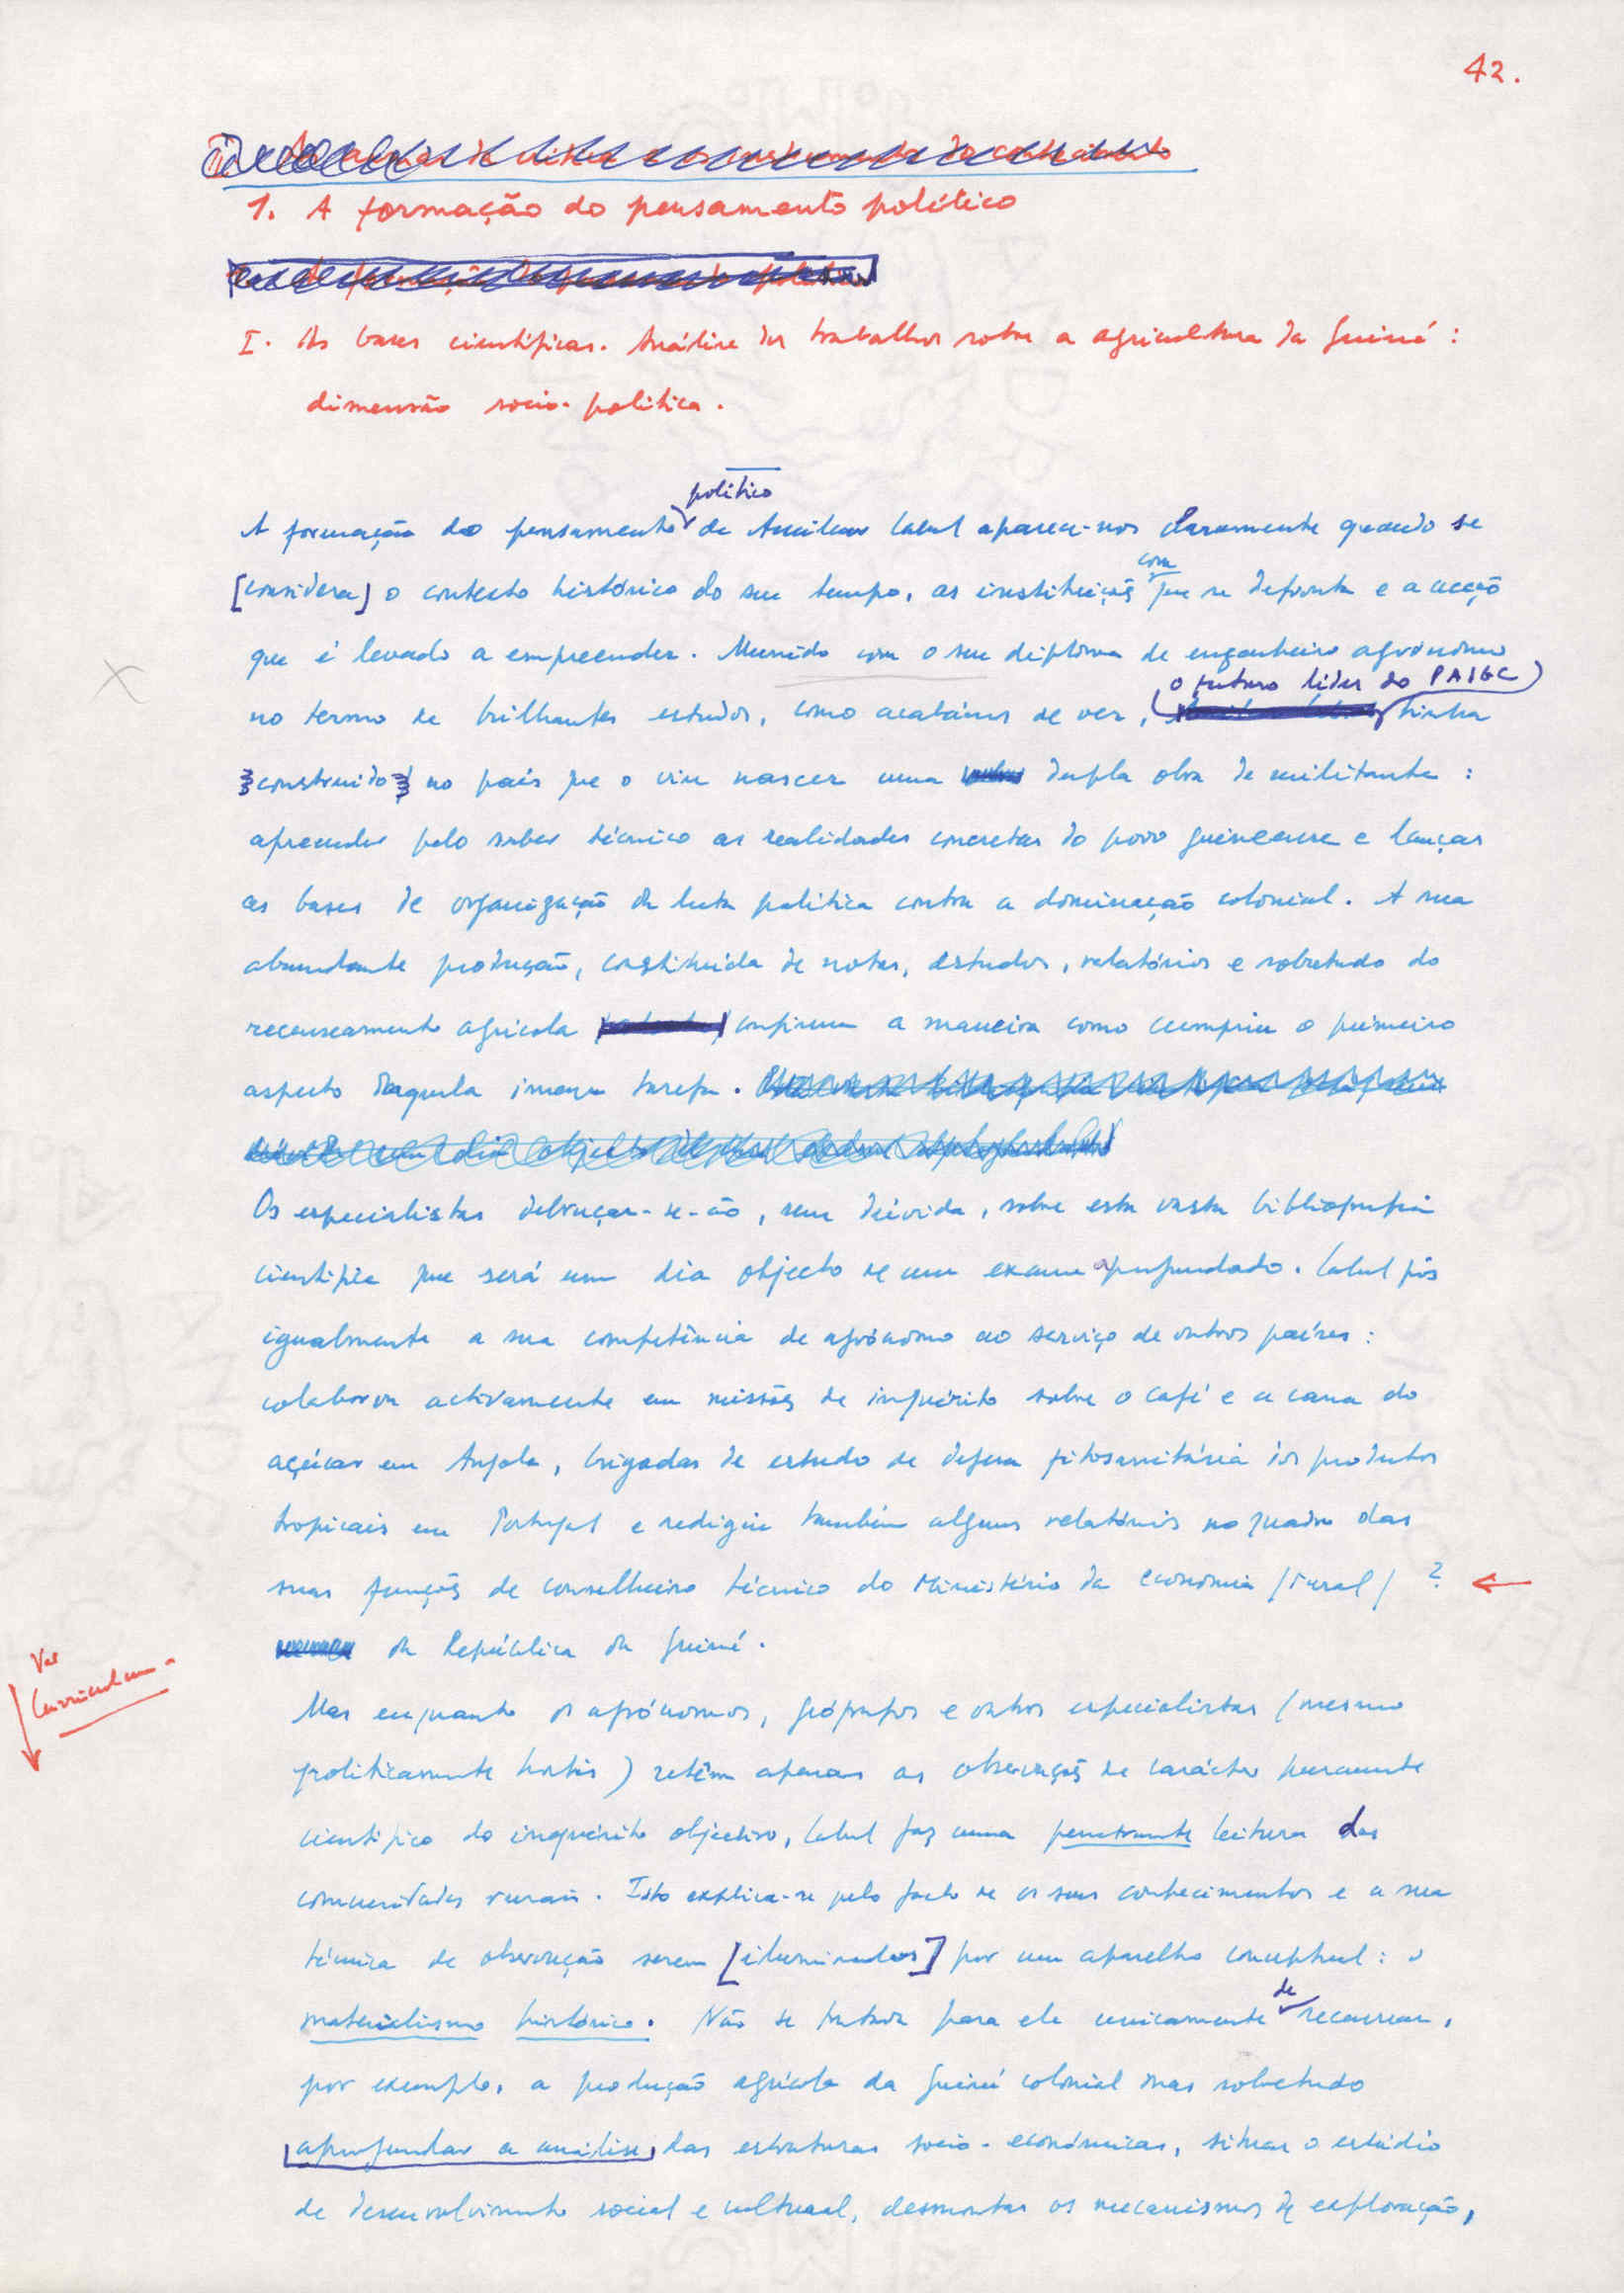 42.
1. A formação do pensamento político
I. As bases científicas. Análise dos trabalhos sobre a agricultura da Guiné :
dimensão socio-política.
político
A formação do pensamento de Amílcar Cabral aparece-nos claramente quando se
com
[considera] o contexto histórico do seu tempo, as instituições que se defronta e a acção
que é levado a empreender. Munido com o seu diploma de engenheiro agrónomo
o futuro líder do PAIGC
no termo de brilhantes estudos, como acabámos de ver, tinha
construido no país que o viu nascer uma dupla obra de militante :
apreender pelo saber técnico as realidades concretas do povo guineense e lançar
as bases de organização da luta política contra a dominação colonial. A sua
abundante produção, constituída de notas, estudos, relatórios e sobretudo do
recenseamento agrícola confirma a maneira como cumpriu o primeiro
aspecto daquela imensa tarefa.
Os especialistas debruçar-se-ão, sem dúvida, sobre esta vasta bibliografia
científica que será um dia objecto de um exame aprofundado. Cabral pôs
igualmente a sua competência de agrónomo ao serviço de outros países :
colaborou activamente em missões de inquérito sobre o café e a cana do
açúcar em Angola, brigadas de estudo de defesa fitosanitária dos produtos
tropicais em Portugal e redigiu também alguns relatórios no quadro das
suas funções de conselheiro técnico do Ministério da Economia /rural/ ?
da República da Guiné.
Ver
Curriculum
Mas enquanto os agrónomos, geógrafos e outros especialistas (mesmo
politicamente hostis) retêm apenas as observações de carácter puramente
científico do inquérito objectivo, Cabral faz uma penetrante leitura das
comunidades rurais. Isto explica-se pelo facto de os seus conhecimentos e a sua
técnica de observação serem [iluminados] por um aparelho conceptual : o
de
materialismo histórico. Não se tratava para ele unicamente recensear,
por exemplo, a produção agrícola da Guiné colonial mas sobretudo
aprofundar a análise das estruturas socio-económicas, situar o estádio
de desenvolvimento social e cultural, desmontar os mecanismos de exploração,